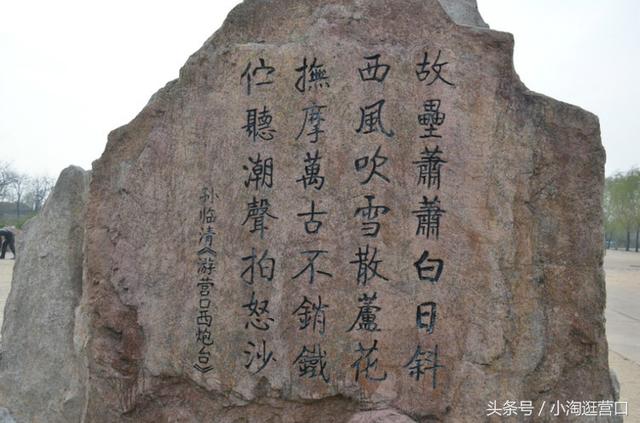 故壘蕭蕭白日斜
西風吹雪散蘆花
撫摩萬古不銷鐵
伫聽潮聲拍怒沙
孙临清《游营口西炮台》
头条号 / 小淘逛营口